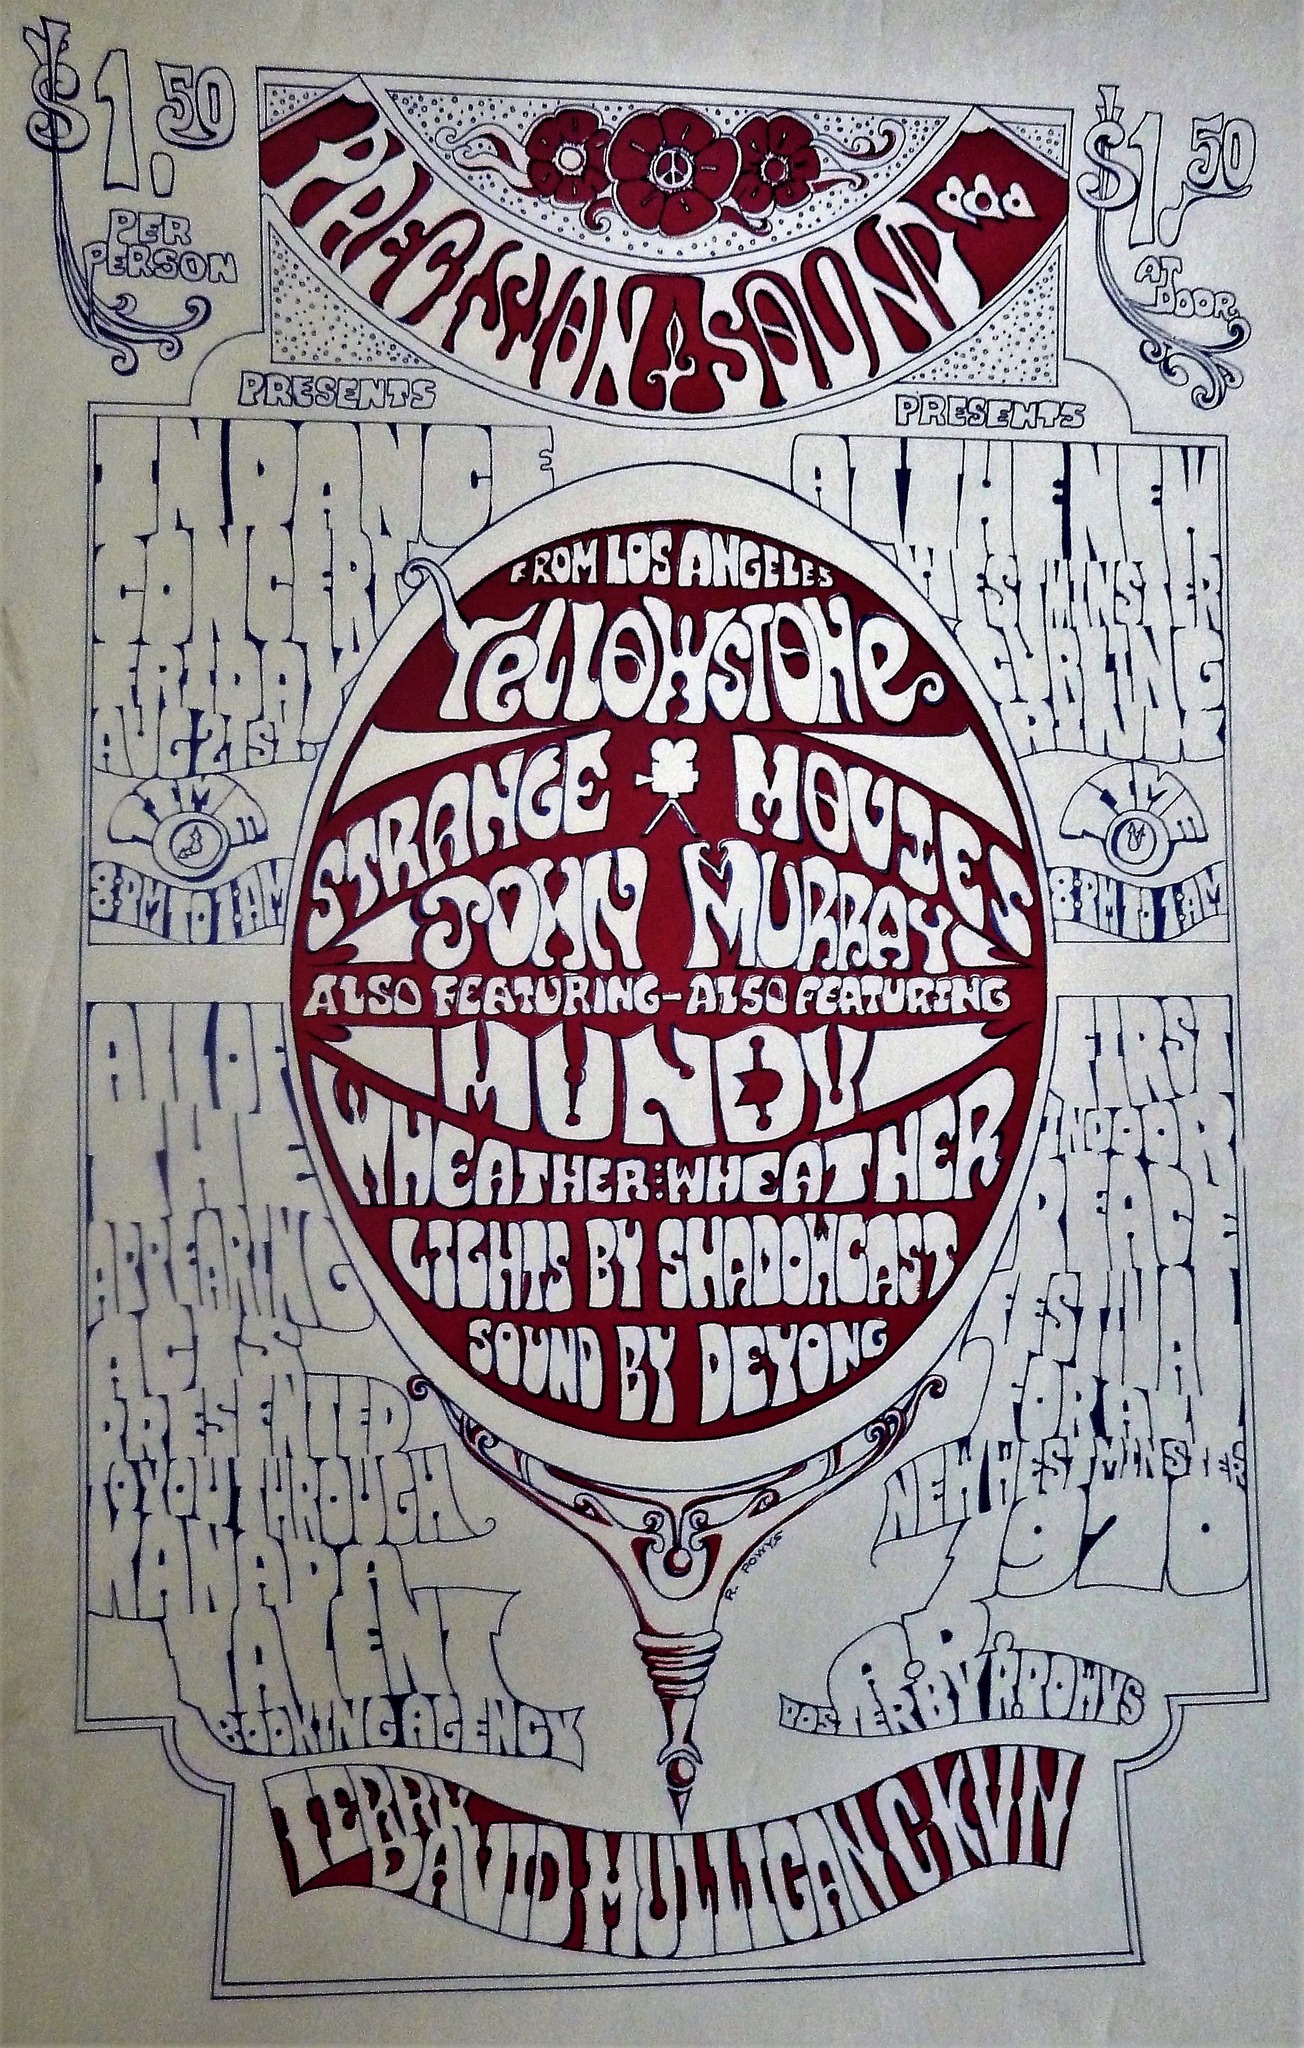 $1.50
PER
PERSON
$1.50
AT
DOOR
PRECISION SOUND
PRESENTS
PRESENTS
IN DANCE
CONCERT
FRIDAY
AUG 21ST.
TIME
8:PM TO 1:AM
AT THE NEW
WESTMINSTER
CURLING
RINK
TIME
8:PM TO 1:AM
FROM LOS ANGELES
YELLOWSTONE
STRANGE MOVIES
JOHN MURRAY
ALSO FEATURING-ALSO FEATURING
MUNDY
WHEATHER:WHEATHER
LIGHTS BY SHADOWCAST
SOUND BY DEYONG
ALL OF
THE
APPEARING
ACTS
PRESENTED
TO YOU THROUGH
KANADA
TALENT
BOOKING AGENCY
FIRST
INDOOR
PEACE
FESTIVAL
FOR ALL
NEW WESTMINSTER
1970
R. POWYS
POSTER BY R. POWYS
TERRY
DAVID MULLIGAN CKVN